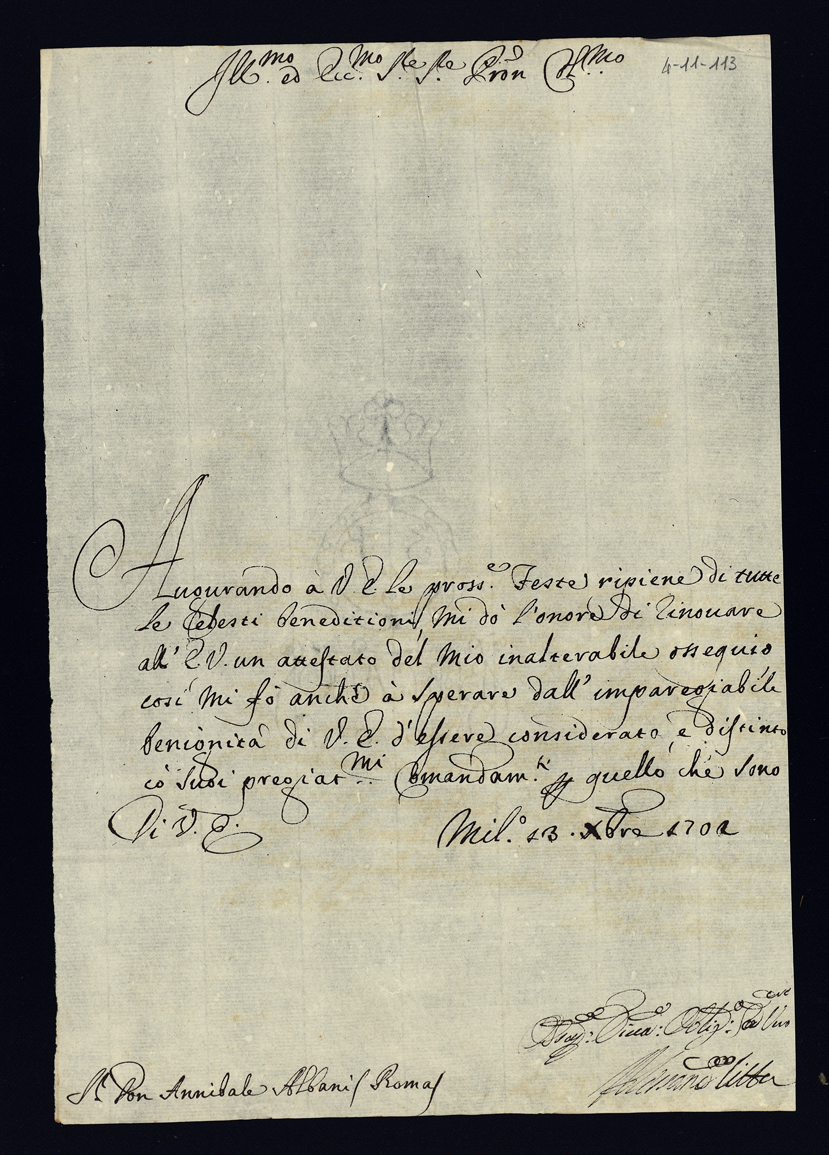 Ill.mo ed Ecc.mo Sre Sre Pron Col.mo
4-11-113
Augurando à V. E. le pross.e Feste ripiene di tutte
le Celesti beneditioni, mi dò l'onore di rinouare
all' E. V. un attestato del mio inalterabile ossequio
cosi mi fò anche à sperare dall' impareggiabile
benignità di V. E. d'essere considerato, e distinto
cò suoi pregiat.mi Comandam.ti quello che sono
Di V. E.
Mil.o 13. Xbre 1702
Diuo: Oblig.
Litta
Sr. Don Annibale Albani Roma